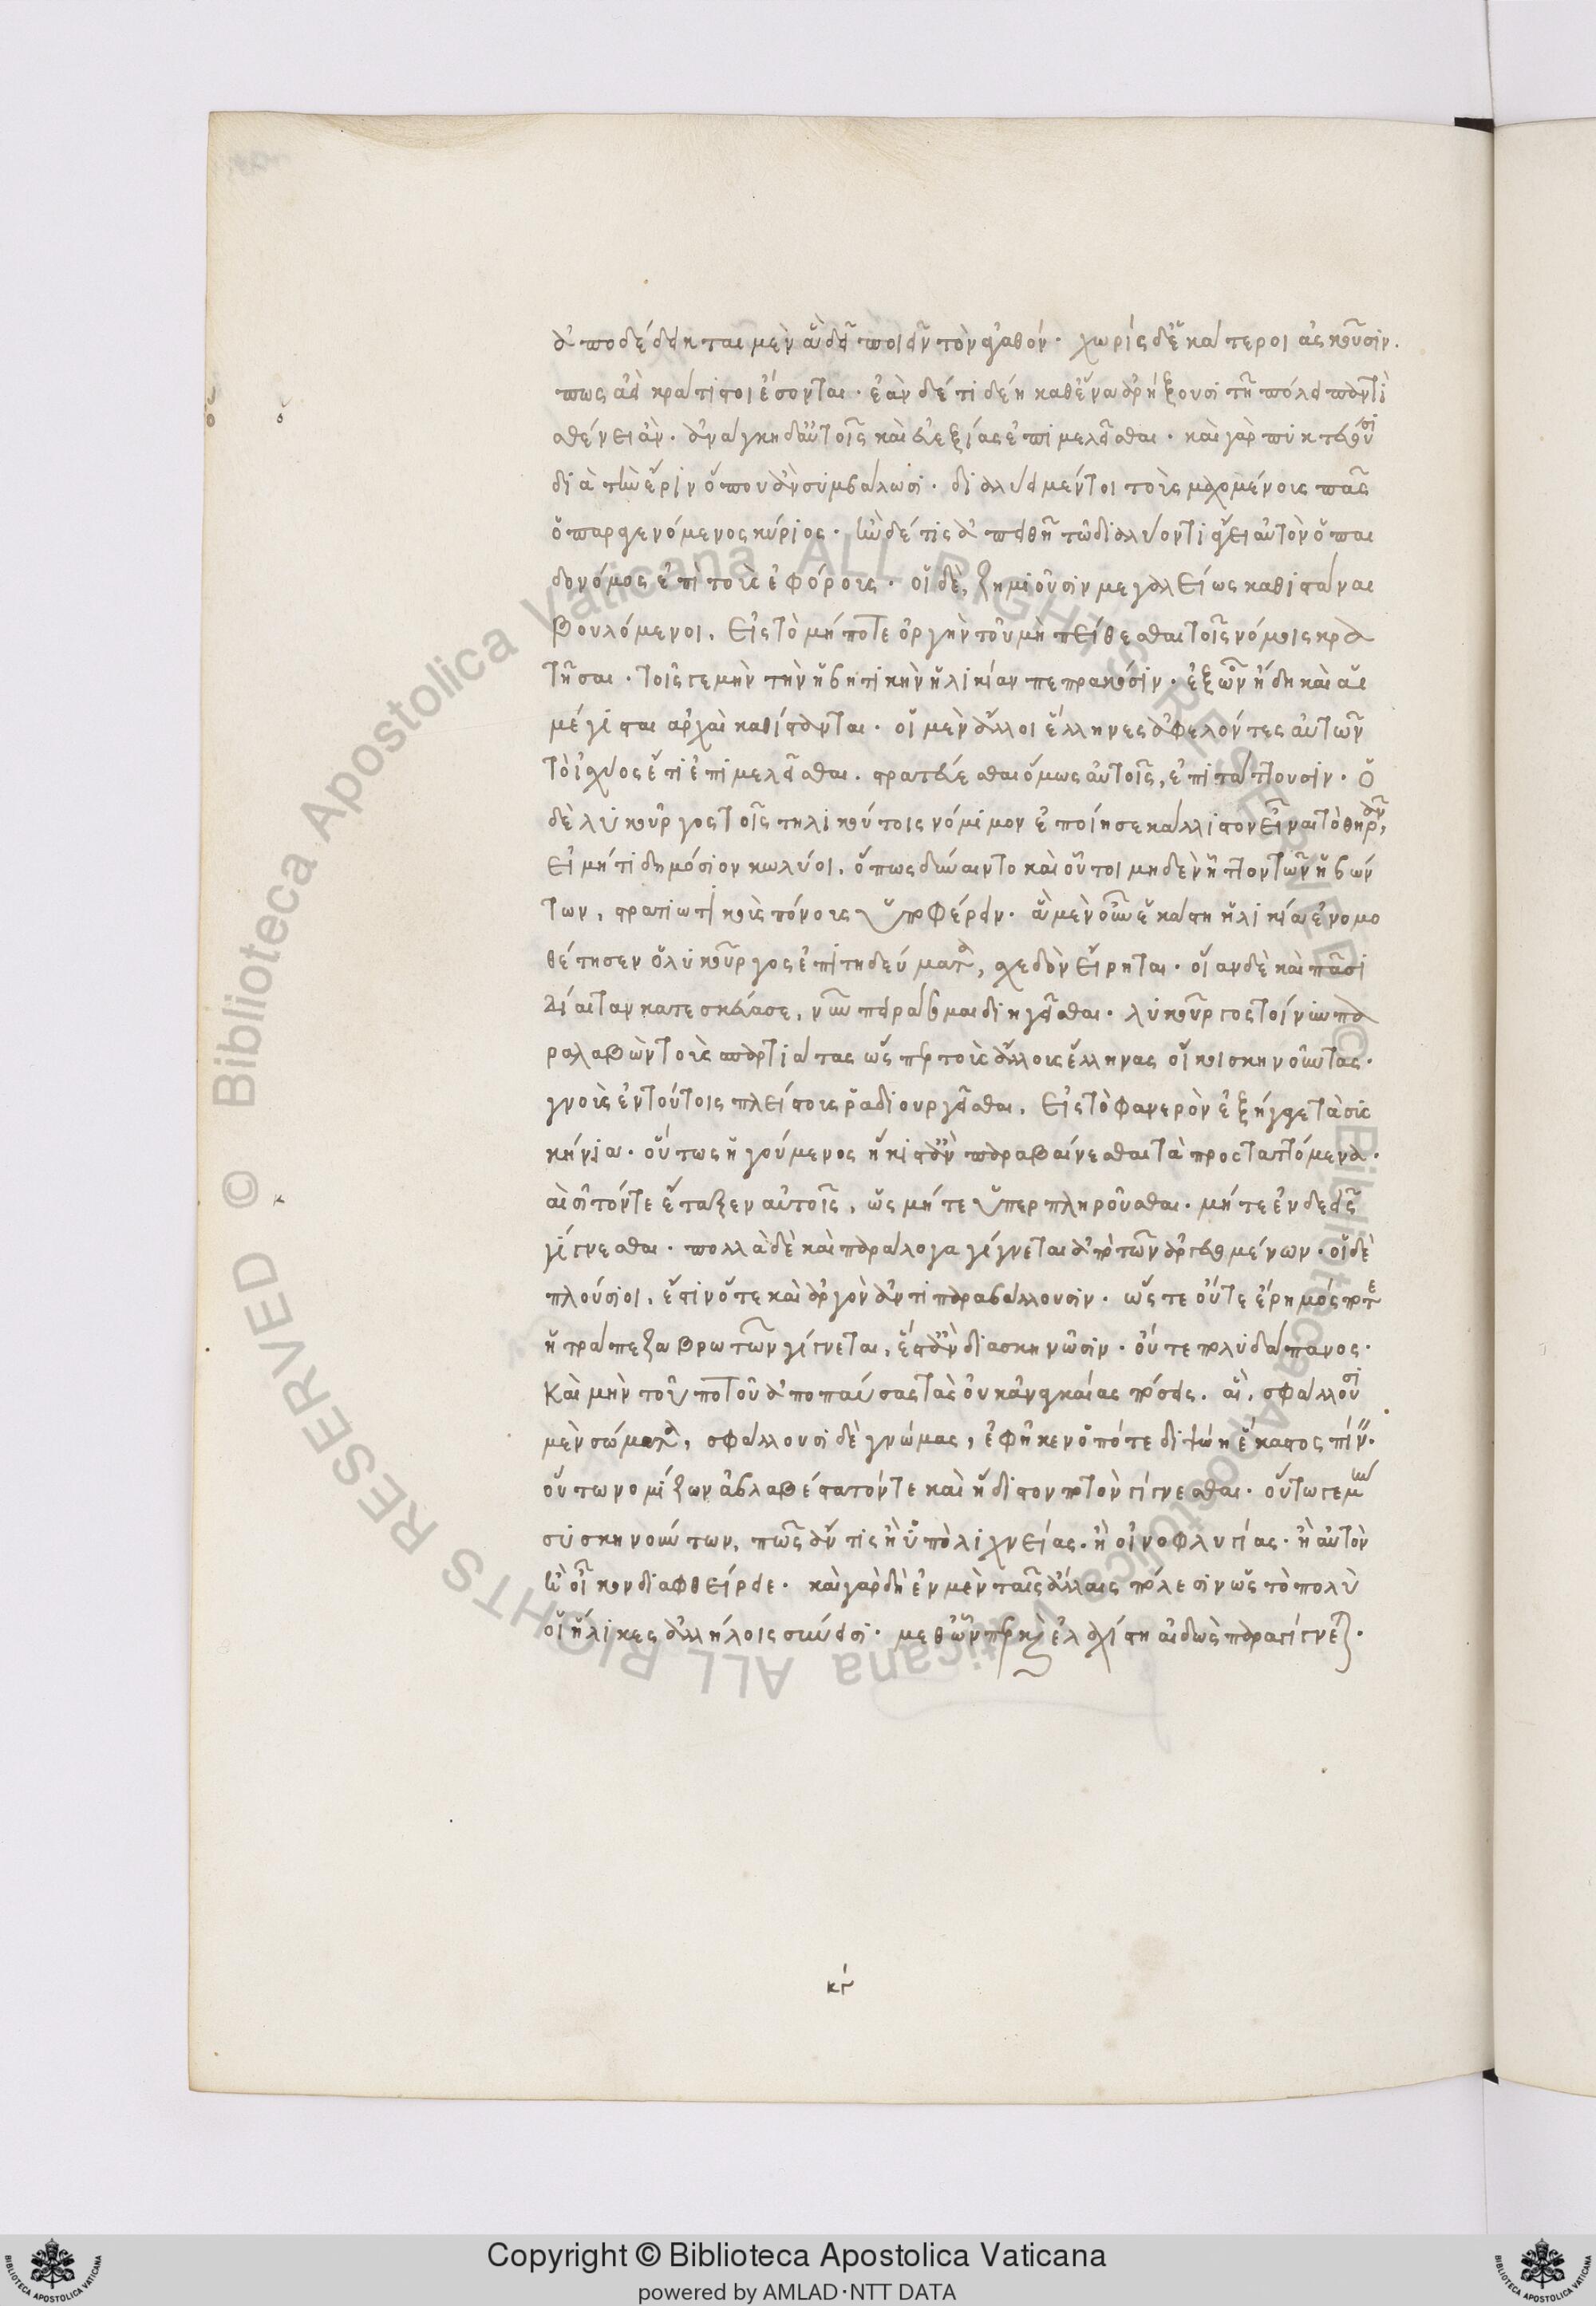 ἀποδέδεικται μὲν ἃ δεῖ ποιεῖν τὸν ἀγαθόν· χωρὶς δ' ἑκάτεροι ἀσκοῦσιν.
πως ἀεὶ κράτιστοι ἔσονται· ἐὰν δέ τι δέη καθ' ἕνα ἀρήξουσι τῆ πόλει παντὶ
σθένει ἄν· ἀνάγκη δ' αὐτοῖς καὶ εὐεξίας ἐπιμελεῖσθαι· καὶ γὰρ πυκτεύουσι
διὰ τὴν ἔριν ὅπου ἂν συμβάλωσι· διαλύει μέντοι τοὺς μαχομένους πᾶς
ὁ παραγενόμενος κύριος· ἢν δέ τις ἀπειθῆ τῶ διαλύοντι ἄγει αὐτὸν ὁ παι
δονόμος ἐπὶ τοὺς ἐφόρους· οἱ δὲ, ζημιοῦσιν μεγαλείως καθιστάναι
βουλόμενοι, εἰς τὸ μήποτε ὀργὴν τοῦ μὴ πείθεσθαι τοῖς νόμοις κρα
τῆσαι· τοῖς γε μὴν τὴν ἡβητικὴν ἡλικίαν πεπρακόσιν· ἐξ ὧν ἤδη καὶ αἱ
μέγισται ἀρχαὶ καθίστανται· οἱ μὲν ἄλλοι ἕλληνες ἀφελόντες αὐτῶν
τὸ ἰσχύος ἔτι ἐπιμελεῖσθαι. στρατεύεσθαι ὅμως αὐτοῖς, ἐπιτάττουσιν· ὁ
δὲ λυκοῦργος τοῖς τηλικούτοις νόμιμον ἐποίησε κάλλιστον εἶναι τὸ θηρᾶν,
εἰ μή τι δημόσιον κωλύοι, ὅπως δύναιντο καὶ οὗτοι μηδὲν ἧττον τῶν ἡβών
των, στρατιωτικοὺς πόνους ὑποφέρειν· ἃ μὲν οὖν ἑκάστη ἡλικία ἐνομο
θέτησεν ὁ λυκοῦργος ἐπιτηδεύματα, σχεδὸν εἴρηται· οἵαν δὲ καὶ πᾶσι
δίαιταν κατεσκεύασε, νῦν πειράσομαι διηγεῖσθαι· λυκοῦργος τοίνυν πα
ραλαβὼν τοὺς σπαρτιάτας ὥσπερ τοὺς ἄλλους ἕλληνας οἴκοι σκηνοῦντας·
γνοὺς ἐν τούτοις πλεῖστοις ῥαδιουργεῖσθαι, εἰς τὸ φανερὸν ἐξήγαγε τὰ συσ
κήνια· οὕτως ἡγούμενος ἥκιστ' ἂν παραβαίνεσθαι τὰ προσταττόμενα·
αὶ σῖτόν τε ἔταξεν αὐτοῖς, ὡς μήτε ὑπερπληροῦσθαι· μήτε ἐνδεεῖς
γίγνεσθαι· πολλὰ δὲ καὶ παράλογα γίγνεται ἀπὸ τῶν ἀγρευομένων· οἱ δὲ
πλούσιοι, ἔστιν ὅτε καὶ ἄργον ἀντιπαραβάλλουσιν· ὥστε οὔτε ἔρημός ποτε
ἡ τράπεζα βρωτῶν γίγνεται, ἔστ' ἂν διασκηνῶσιν· οὔτε πολυδάπανος·
καὶ μὴν τοῦ ποτοῦ ἀποπαύσας τὰς οὐκ ἀναγκαίας πόσεις. αἳ, σφάλλουσι
μὲν σώματα, σφάλλουσι δὲ γνώμας, ἐφῆκεν ὁπότε διψώη ἕκαστος πίνειν·
οὕτω νομίζων ἀβλαβέστατόν τε καὶ ἥδιστον ποτὸν γίγνεσθαι· οὕτω γε μὴν
συσκηνούντων, πῶς ἄν τις ἢ ὑπὸ λιχνείας· ἢ οἰνοφλυγίας· ἢ αὐτὸν
ἢ οἶκον διαφθείρειε· καὶ γὰρ δὴ ἐν μὲν ταῖς ἄλλαις πόλεσιν ὡς τὸ πολὺ
οἱ ἥλικες ἀλλήλοις σύνεισι· μεθ' ὧν περ καὶ ἐλαχίστη αἰδὼς παραγίγνεται·
κγ
Copyright © Biblioteca Apostolica Vaticana
powered by AMLAD·NTT DATA